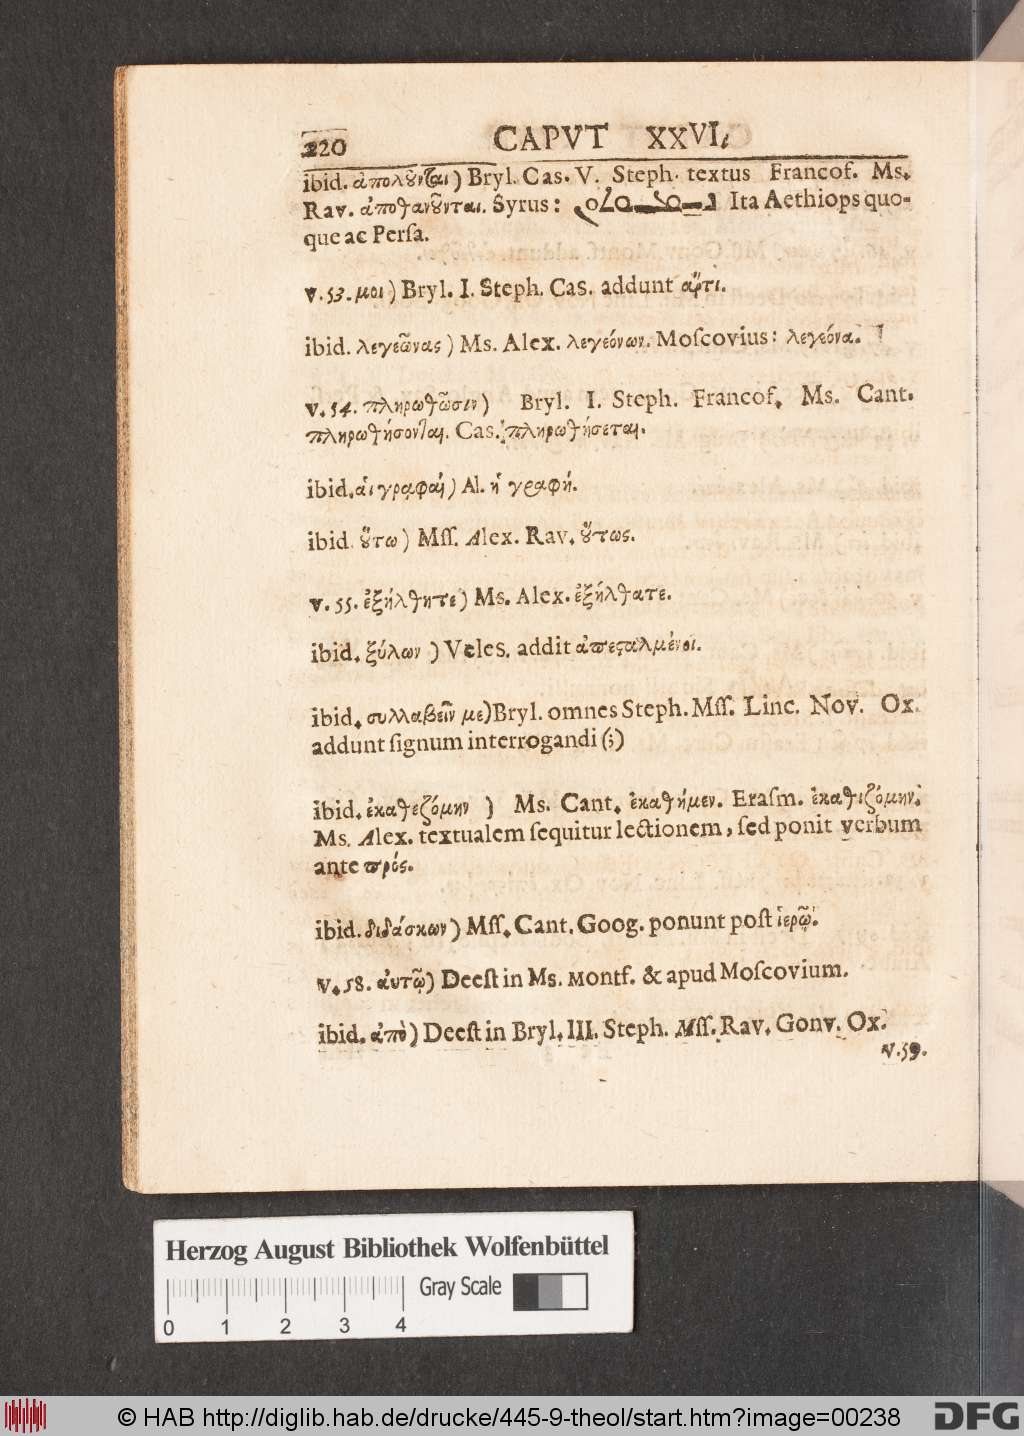 220 CAPVT XXVI.
ibid. ἀπολοῦνται) Bryl. Cas. V. Steph. textus Francof. Ms.
Rav. ἀποθανοῦνται. Syrus: Ita Aethiops quo-
que ac Perſa.
v. 53. μοι) Bryl. I. Steph. Cas. addunt ἄρτι.
ibid. λεγεῶνας) Ms. Alex. λεγεόνων. Moſcovius: λεγεόνα.
v. 54. πληρωθῶσιν) Bryl. I. Steph. Francof. Ms. Cant.
πληρωθήσονται. Cas. πληρωθήσεται.
ibid. αἱ γραφαί) Al. ἡ γραφή.
ibid. οὕτω) Mſſ. Alex. Rav. οὕτως.
v. 55. ἐξήλθητε) Ms. Alex. ἐξήλθατε.
ibid. ξύλων) Veles. addit ἀπεσταλμένοι.
ibid. συλλαβεῖν με) Bryl. omnes Steph. Mſſ. Linc. Nov. Ox.
addunt ſignum interrogandi (;)
ibid. ἐκαθεζόμην) Ms. Cant. ἐκαθήμεν. Eraſm. ἐκαθιζόμην.
Ms. Alex. textualem ſequitur lectionem, ſed ponit verbum
ante πρός.
ibid. διδάσκων) Mſſ. Cant. Goog. ponunt poſt ἱερῷ.
v. 58. αὐτῷ) Deeſt in Ms. Montf. & apud Moſcovium.
ibid. ἀπὸ) Deeſt in Bryl. III. Steph. Mſſ. Rav. Gonv. Ox.
v. 59.
Herzog August Bibliothek Wolfenbüttel
Gray Scale
0 1 2 3 4
© HAB http://diglib.hab.de/drucke/445-9-theol/start.htm?image=00238
DFG